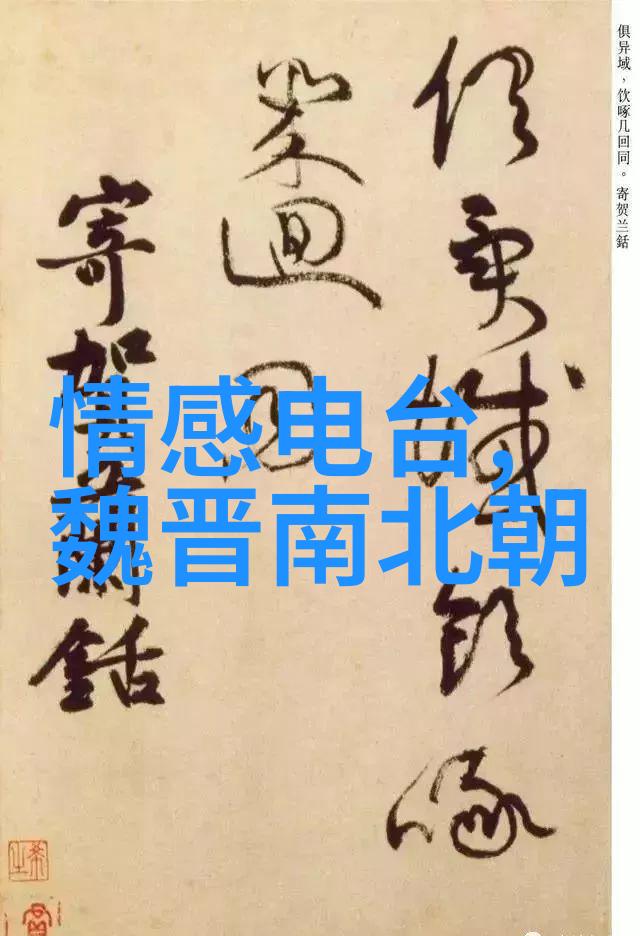 俱異域飲啄
幾迴同
寄賀蘭銛
俱异域，饮啄几回同。寄贺兰銛
情感电台,
魏晋南北朝